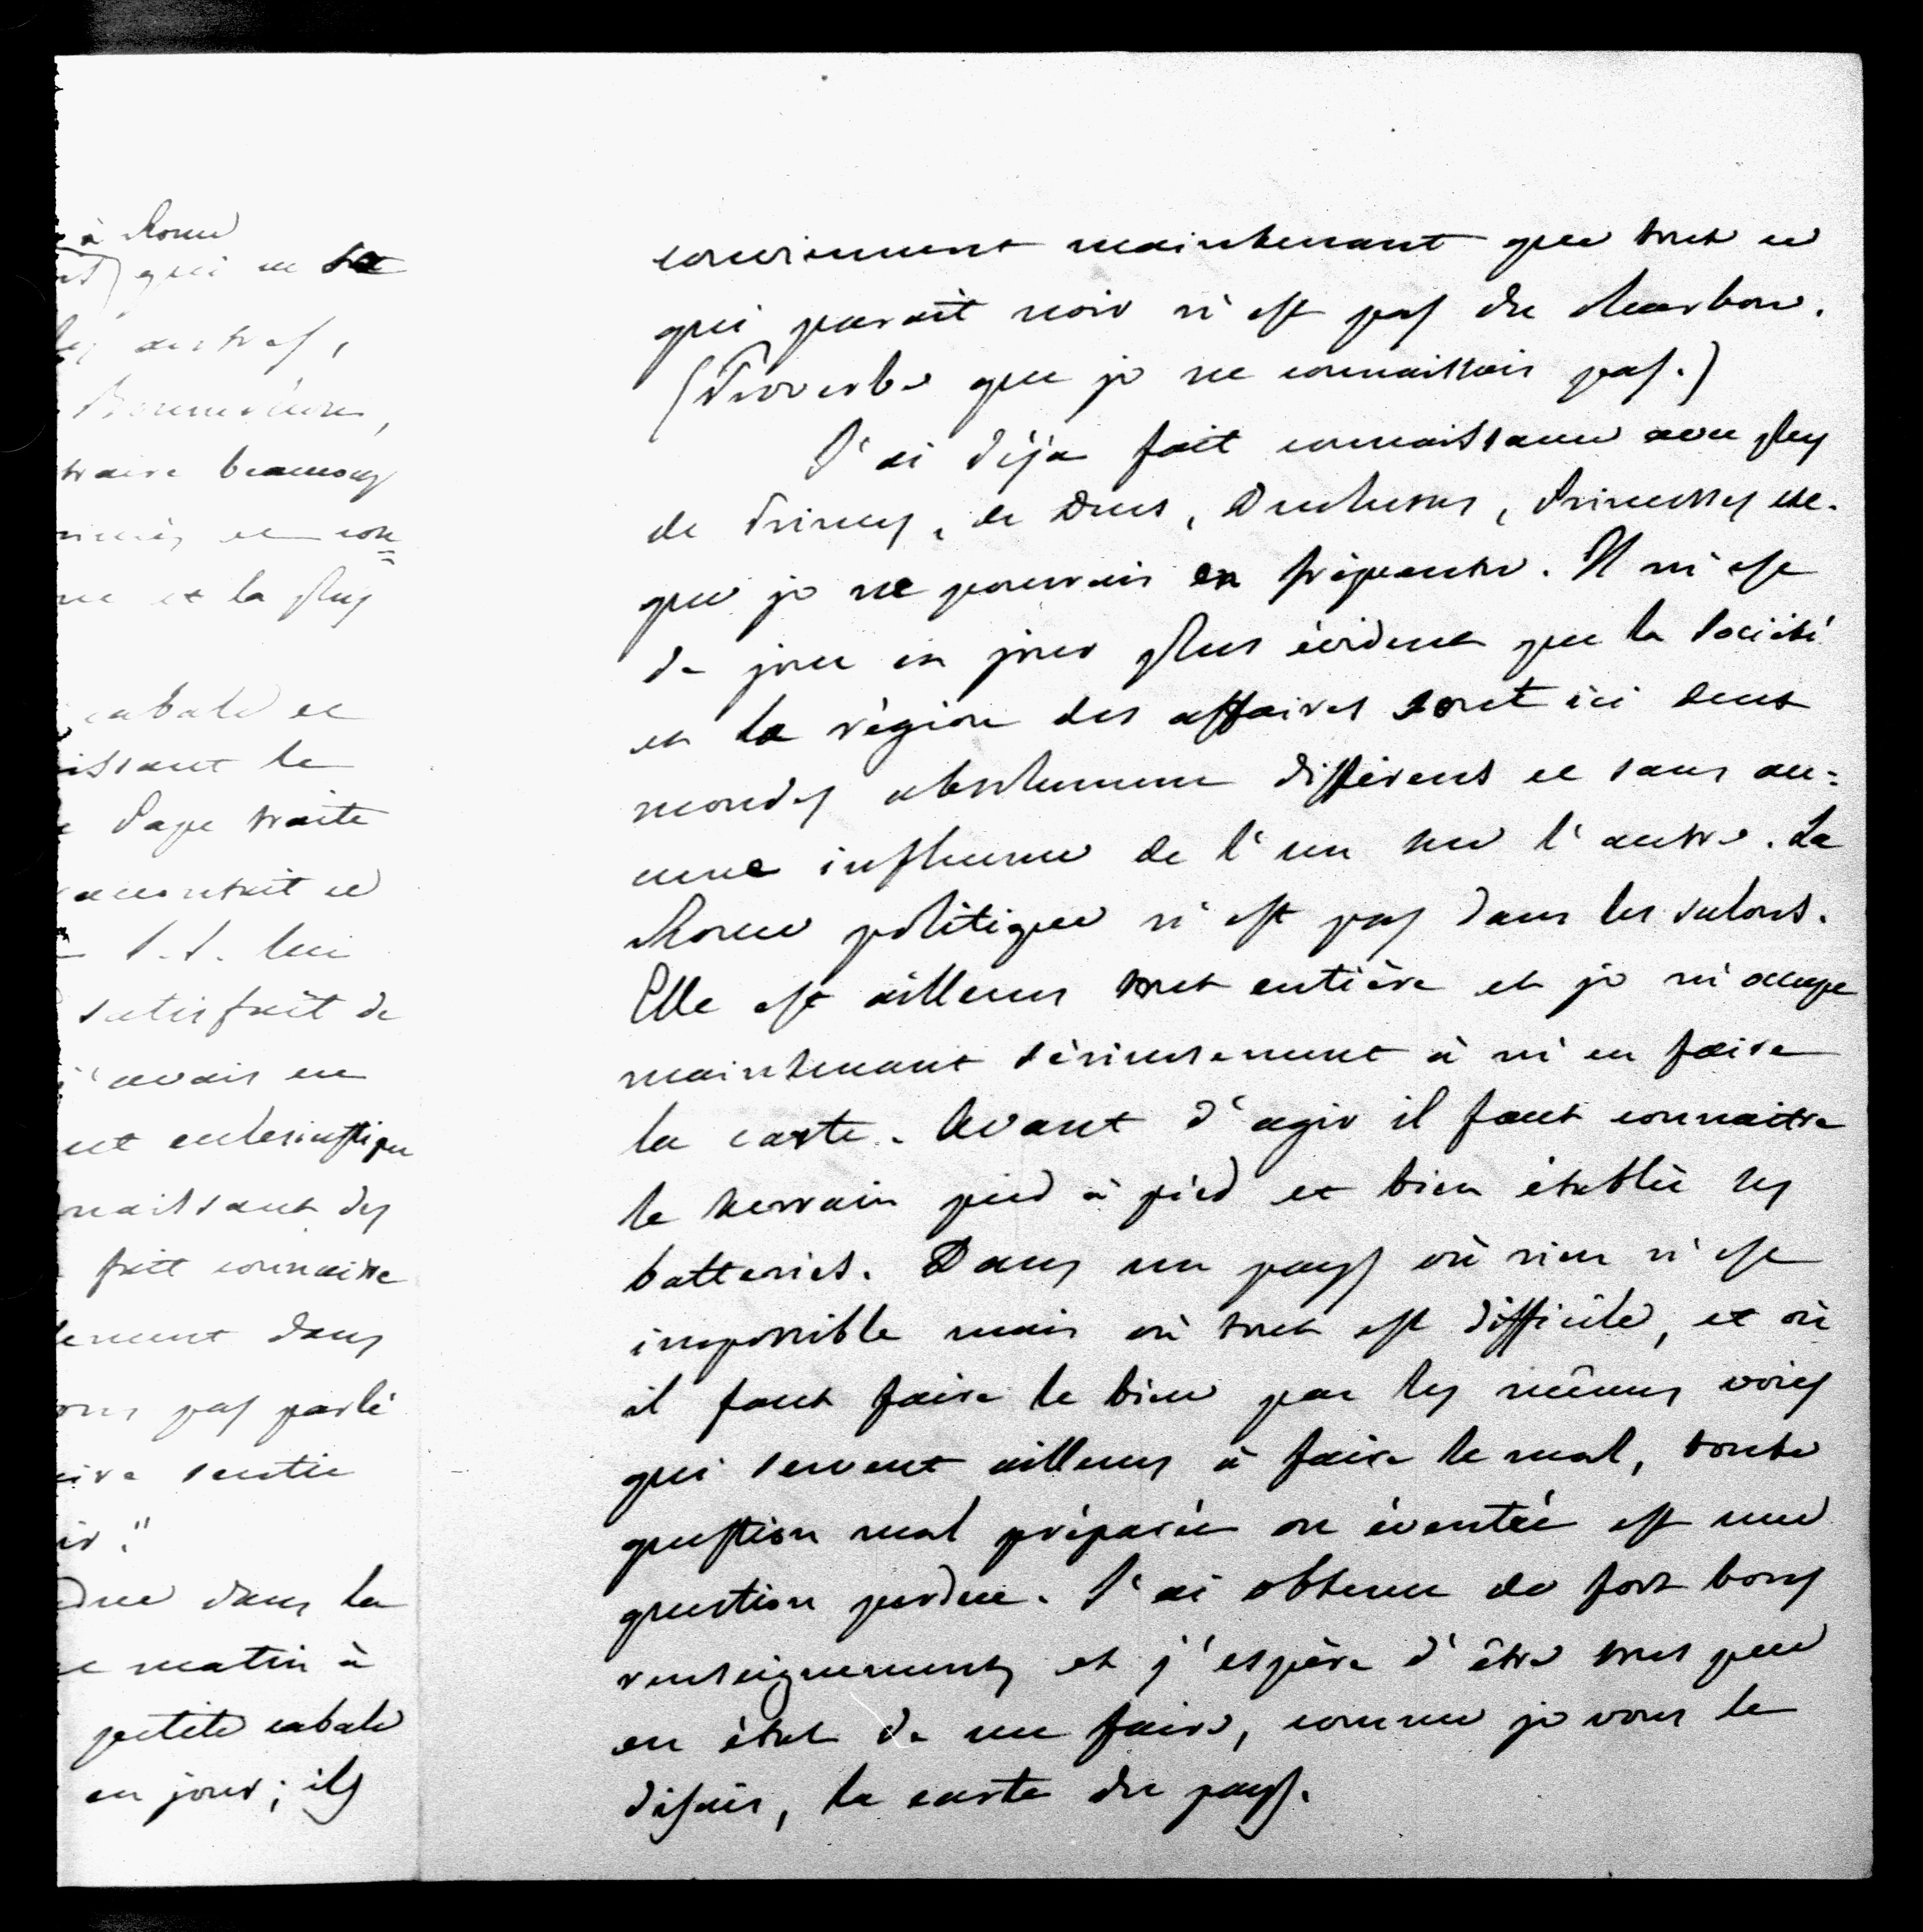 à Rome
qui se
les autres,
Bonnevière,
traire beaucoup
et con=
et la plus
cabale et
issant le
Pape traite
racontait ce
S. S. lui
satisfait de
j'avais eu
ent ecclésiastique
naissant des
fait connaître
lement dans
ons pas parlé
sentie
ir."
due dans la
ce matin à
petite cabale
en jour; ils
conviennent maintenant que tout ce
qui parait noir n'est pas du charbon.
(Proverbe que je ne connaissais pas.)
J'ai déja fait connaissance avec plus
de Princes, de Ducs, Duchesses, Princesses etc.
que je ne pourrais en fréquenter. Il m'est
de jour en jour plus évident que la Société
et la région des affaires sont ici deux
mondes absolument différents et sans au=
cune influence de l'un sur l'autre. La
Rome politique n'est pas dans les salons.
Elle est ailleurs tout entière et je m'occupe
maintenant sérieusement à m'en faire
la carte. Avant d'agir il faut connaitre
le terrain pied à pied et bien établir ses
batteries. Dans un pays où rien n'est
impossible mais où tout est difficile, et où
il faut faire le bien par les mêmes voies
qui servent ailleurs à faire le mal, toute
question mal préparée ou éventée est une
question perdue. J'ai obtenu de fort bons
renseignements et j'espère d'être sous peu
en état de me faire, comme je vous le
disais, la carte du pays.